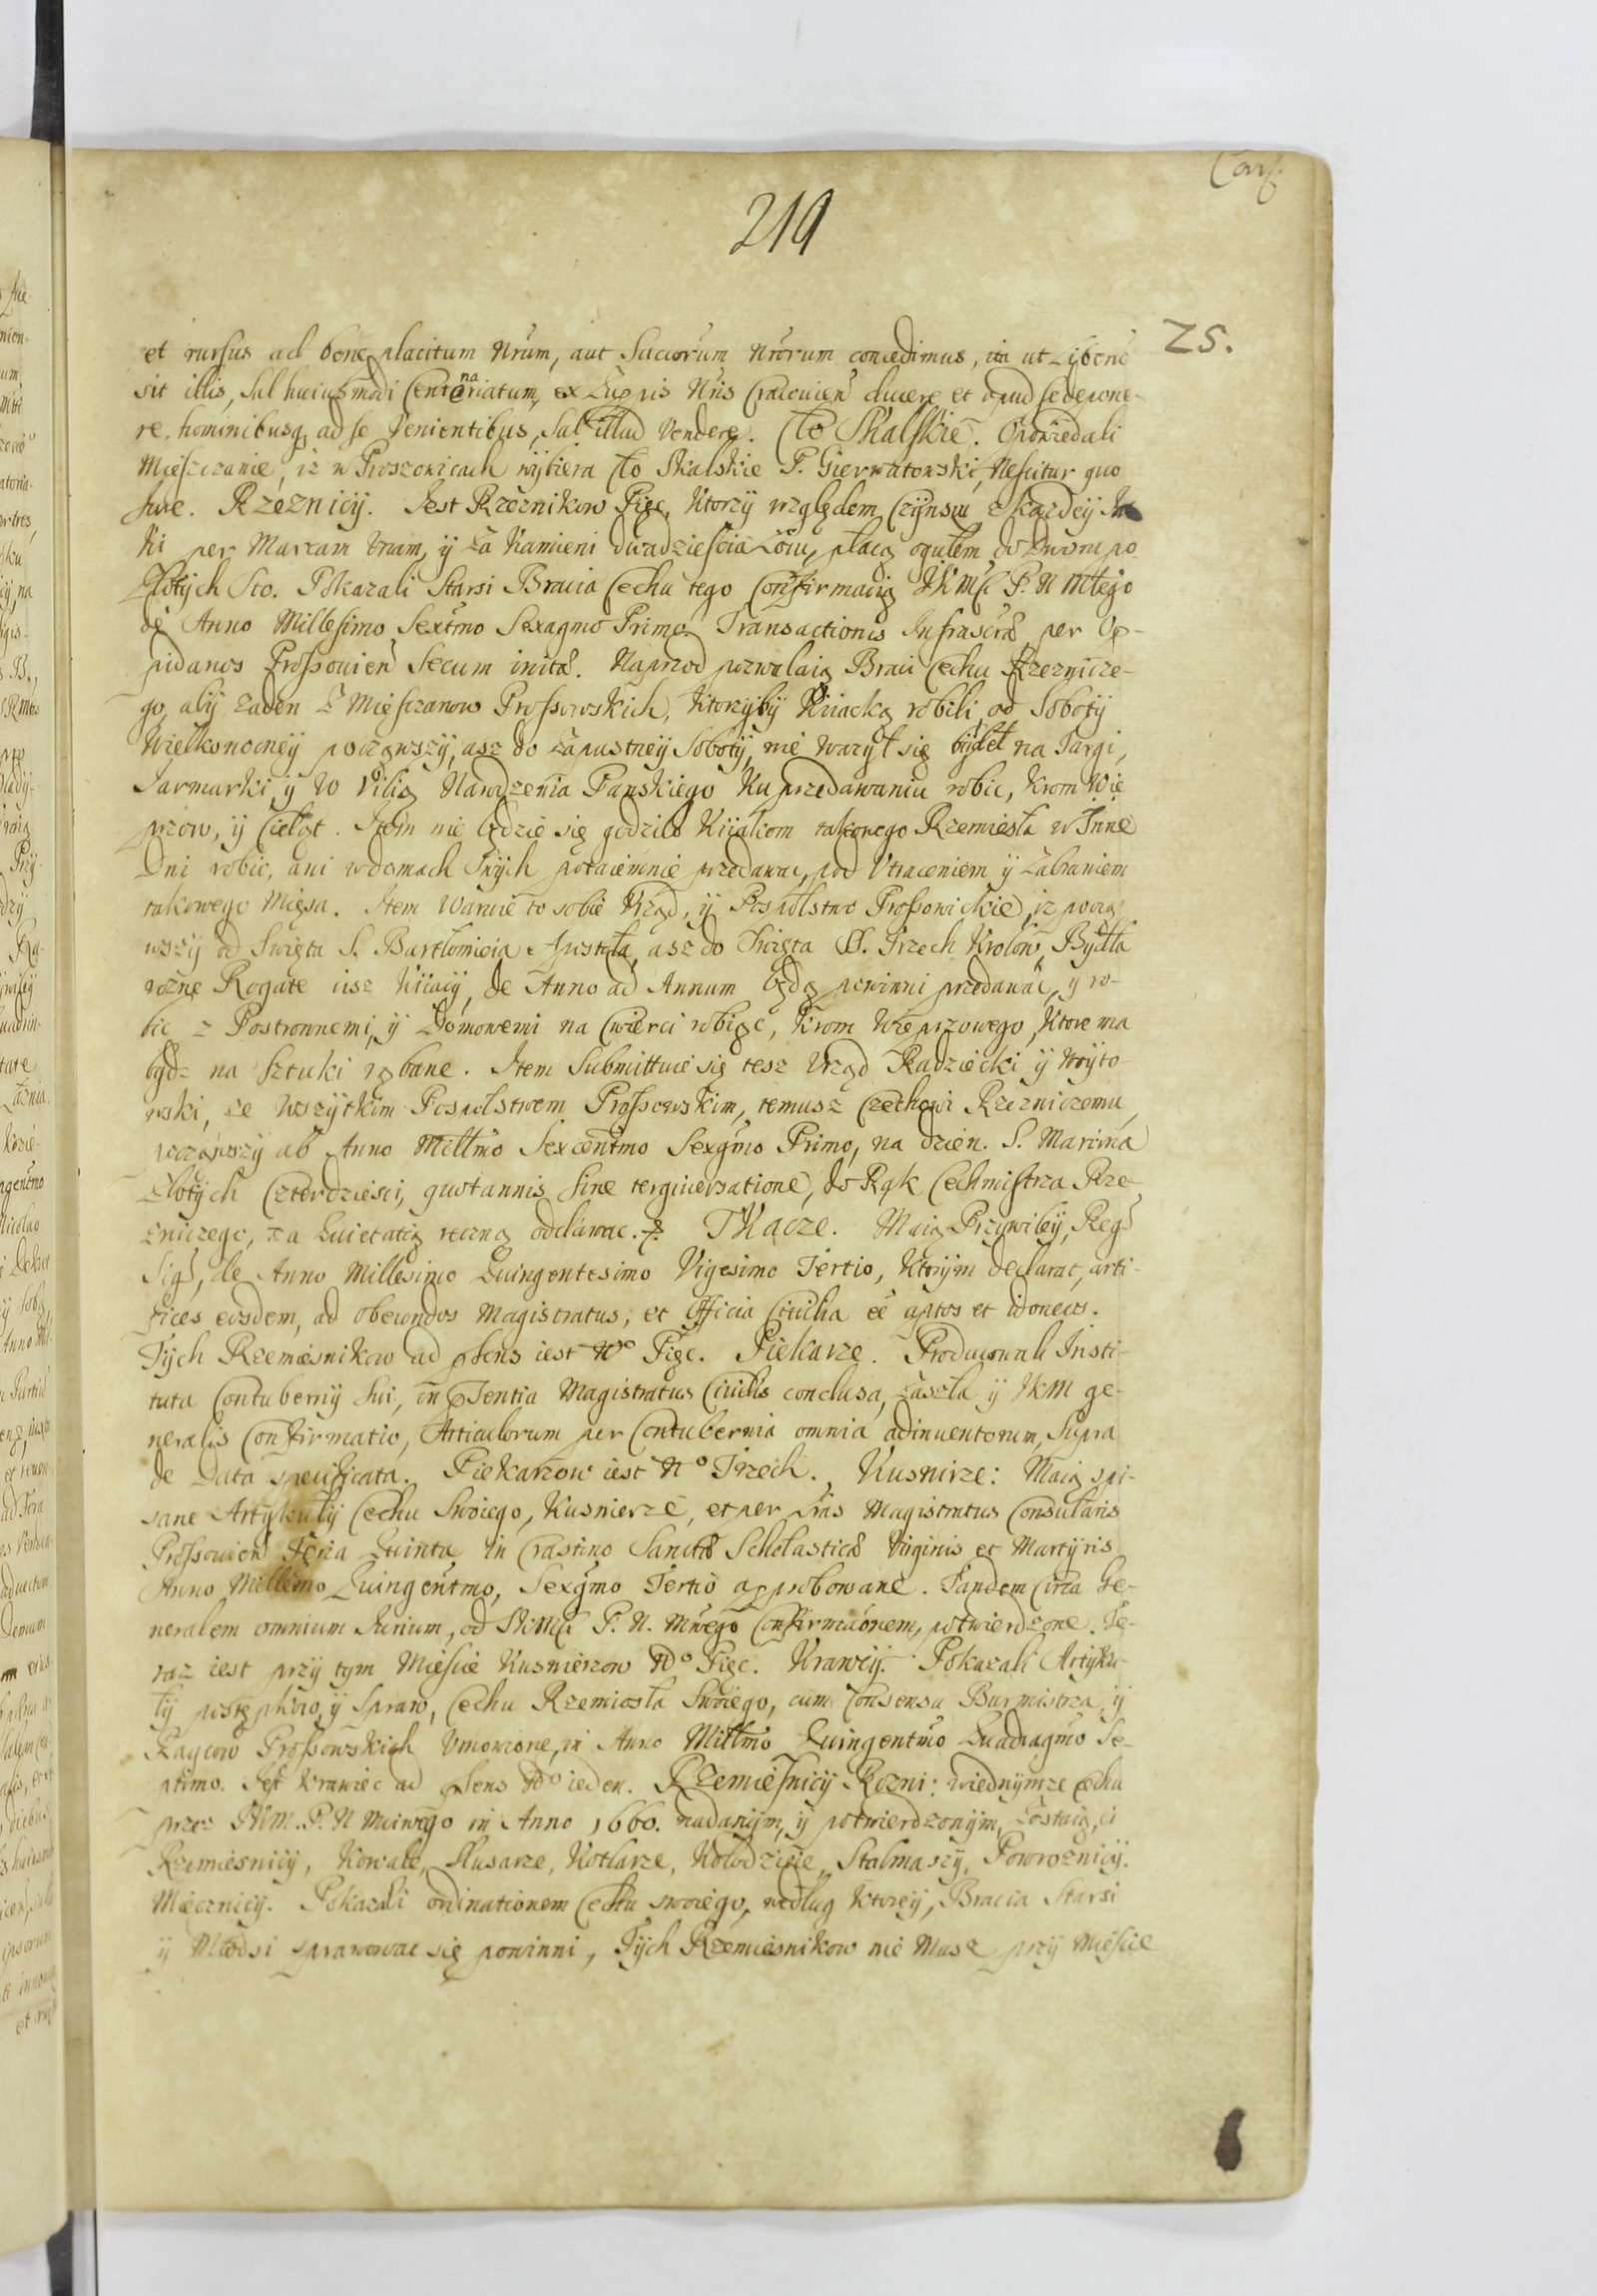 Conf.
219
25.
et rursus ad bene placitum Nrum, aut Succorum Nrorum concedimus, ita ut Lÿberu
sit illis, Sal huiusmodi Centenariatum, ex Zuppis Nris Cracouien ducere et apud se depone-
re, hominibusq ad se Venientibus, Sal illud Vendere. Cło Skalskie. Opowiedali
Mieszczanie, iz w Proszowicach wÿbiera Cło Skalskie P. Gierwatowski, Nescitur quo
Iure. Rzeznicÿ. Iest Rzeznikow Pięc, Ktorzÿ względem Czÿnszu z kazdeÿ Iat
ki per Marcam Vnam, ÿ za Kamieni dwadziescia Łoiu, płacą ogułem do Dworu po
Złotÿch Sto. Pokazali Starsi Bracia Cechu tego Confirmacią IKMsc P. N Młego
de Anno Millesimo Sextmo Sexagmo Primo. Transactionis Infrascrae per Op-
pidanos Prossouien Secum initae. Naprzod pozwalaią Braci Cechu Rzeznicze-
go, abÿ zaden z Miesczanow Prossowskich, Ktorzÿbÿ Kiiacką robili, od Sobotÿ
Wielkonocneÿ począwszÿ, asz do Zapustneÿ Sobotÿ, nie wazÿł się bÿdeł na Targi,
Iarmarki, ÿ w Vilią Narodzenia Panskiego Ku przedawaniu robic, krom Wie
przow, ÿ Cieląt. Item nie będzie się godziło Kiiakom takowego Rzemiesła w Inne
Dni robic, ani w domach Swÿch potaiemnie przedawac, pod Vtraceniem ÿ Zabraniem
takowego Mięsa. Item Waruie to sobie Vrząd, ÿ Pospolstwo Prossowickie, iz począ
wszÿ od Swięta S. Bartłomieia Apostoła, asz do Swięta SS. Trzech Krolow, Bÿdła
rozne Rogate iusz Kiiacÿ, de Anno ad Annum będą powinni przedawac, ÿ ro-
bic z Postronnemi, ÿ Domowemi na Cwierci robiąc, krom Wieprzowego, Ktore ma
bÿdz na Sztuki rąbane. Item Submittuie się tesz Vrząd Radziecki ÿ Woÿto-
wski, ze wszÿtkim Pospolstwem Prossowskim, temusz Czechowi Rzezniczemu,
począwszÿ ab Anno Millmo Sexcentmo Sexgmo Primo, na dzien. S. Marcina
Złotÿch Czterdziesci, quotannis Sine tergiuersatione, do Rąk Cechmistrza Rze-
zniczego, za Quietatią roczną oddawac. Tkacze. Maią Przÿwileÿ, Reg
Sigs, de Anno Millesimo Quingentesimo Vigesimo Tertio, Ktorÿm declarat, arti-
fices eosdem, ad obeundos Magistratus, et Officia Ciuilia ee aptos et idoneos.
Tÿch Rzemiesnikow ad psens iest No Pięc. Piekarze. Producunt Insti-
tuta Contubernij Sui, in psentia Magistratus Ciuilis conclusa, zaszła ÿ IKM ge-
neralis Confirmatio, Articulorum per Contubernia omnia adinuentorum, Supra
de Data specificata. Piekarzow iest No Trzech. Kusnirze: Maią spi-
sane Artÿkułÿ Cechu Swoiego, Kusnierze, et per Lras Magistratus Consularis
Prossouien Feria Quinta in Crastino Sanctae Scholasticae Virginis et Martÿris
Anno Millemo Quingentmo, Sexgmo Tertio approbowane. Tandem Circa Ge-
neralem omnium Iurium, od IKMsc P. N. Mnego Confirmaonem, potwierdzone. Te-
raz iest przÿ tym Miescie Kusnierzow No Pięc. Krawcÿ. Pokazali Artÿku-
łÿ postępkow, ÿ Spraw, Cechu Rzemiosła Swoiego, cum Consensu Burmistrza, ÿ
Raycow Prossowskich Vmowione, in Anno Millmo Quingentmo Quadragmo Se-
ptimo. Iest Krawiec ad psens No ieden. Rzemiesnicÿ Rozni: w iednÿmze Cechu
przez IKM. P. N Miwego in Anno 1660. nadanÿm, ÿ potwierdzonÿm, zostaią, ci
Rzemiesnicÿ, Kowale, Slusarze, Kotlarze, Kołodzieie, Stalmaszÿ, Powroznicÿ.
Miecznicÿ. Pokazali ordinationem Cechu swoiego, według ktoreÿ, Bracia Starsi
ÿ Młodsi sprawowac się powinni, Tÿch Rzemiesnikow nie Masz przÿ Miescie